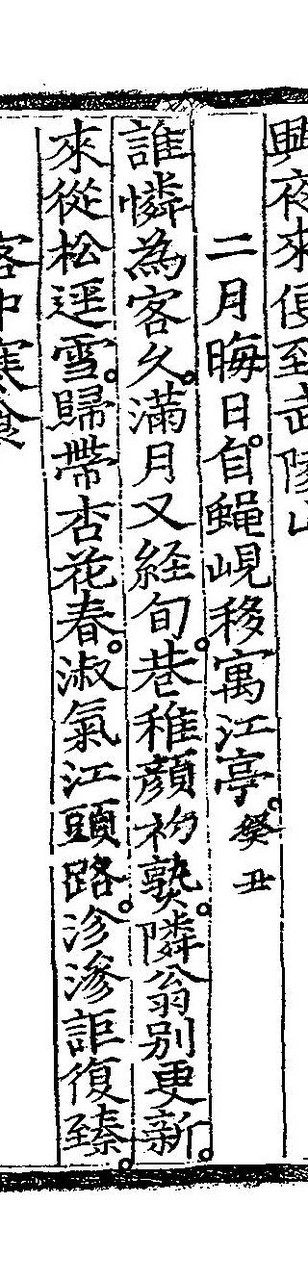 興夜來侵至武陵山
二月晦日自蠅峴移寓江亭癸丑
誰憐為客久滿月又経旬巷稚顔初熟隣翁別更新
來從松逕雪歸帶杏花春淑氣江頭路沴滲詎復臻
客中寒食